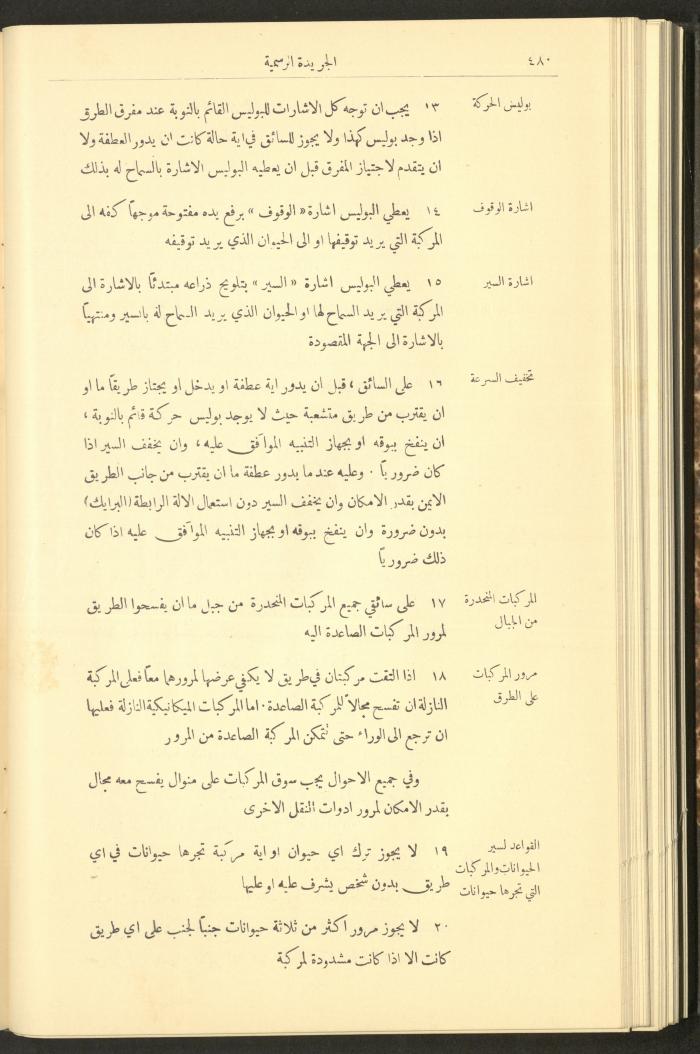 ٤٨٠
الجريدة الرسمية
بوليس الحركة
١٣ يجب ان توجه كل الاشارات للبوليس القائم بالنوبة عند مفرق الطرق
اذا وجد بوليس كهذا ولا يجوز للسائق في اية حالة كانت ان يدور العطفة ولا
ان يتقدم لاجتياز المفرق قبل ان يعطيه البوليس الاشارة بالسماح له بذلك
اشارة الوقوف
١٤ يعطي البوليس اشارة « الوقوف » برفع يده مفتوحة موجهاً كفه الى
المركبة التي يريد توقيفها او الى الحيوان الذي يريد توقيفه
اشارة السير
١٥ يعطي البوليس اشارة « السير » بتلويح ذراعه مبتدئاً بالاشارة الى
المركبة التي يريد السماح لها او الحيوان الذي يريد السماح له بالسير ومنتهياً
بالاشارة الى الجهة المقصودة
تخفيف السرعة
١٦ على السائق ، قبل ان يدور اية عطفة او يدخل او يجتاز طريقاً ما او
ان يقترب من طريق متشعبة حيث لا يوجد بوليس حركة قائم بالنوبة ،
ان ينفخ ببوقه او بجهاز التنبيه الموافق عليه ، وان يخفف السير اذا
كان ضرورياً . وعليه عندما يدور عطفة ما ان يقترب من جانب الطريق
الايمن بقدر الامكان وان يخفف السير دون استعمال الالة الرابطة (البرايك)
بدون ضرورة وان ينفخ ببوقه او بجهاز التنبيه الموافق عليه اذا كان
ذلك ضرورياً
المركبات المنحدرة
من الجبال
١٧ على سائقي جميع المركبات المنحدرة من جبل ما ان يفسحوا الطريق
لمرور المركبات الصاعدة اليه
مرور المركبات
على الطرق
١٨ اذا التقت مركبتان في طريق لا يكفي عرضها لمرورها معاً فعلى المركبة
النازلة ان تفسح مجالاً للمركبة الصاعدة . اما المركبات الميكانيكية النازلة فعليها
ان ترجع الى الوراء حتى تتمكن المركبة الصاعدة من المرور
وفي جميع الاحوال يجب سوق المركبات على منوال يفسح معه مجال
بقدر الامكان لمرور ادوات النقل الاخرى
القواعد لسير
الحيوانات والمركبات
التي تجرها حيوانات
١٩ لا يجوز ترك اي حيوان او اية مركبة تجرها حيوانات في اي
طريق بدون شخص يشرف عليه او عليها
٢٠ لا يجوز مرور اكثر من ثلاثة حيوانات جنباً لجنب على اي طريق
كانت الا اذا كانت مشدودة لمركبة